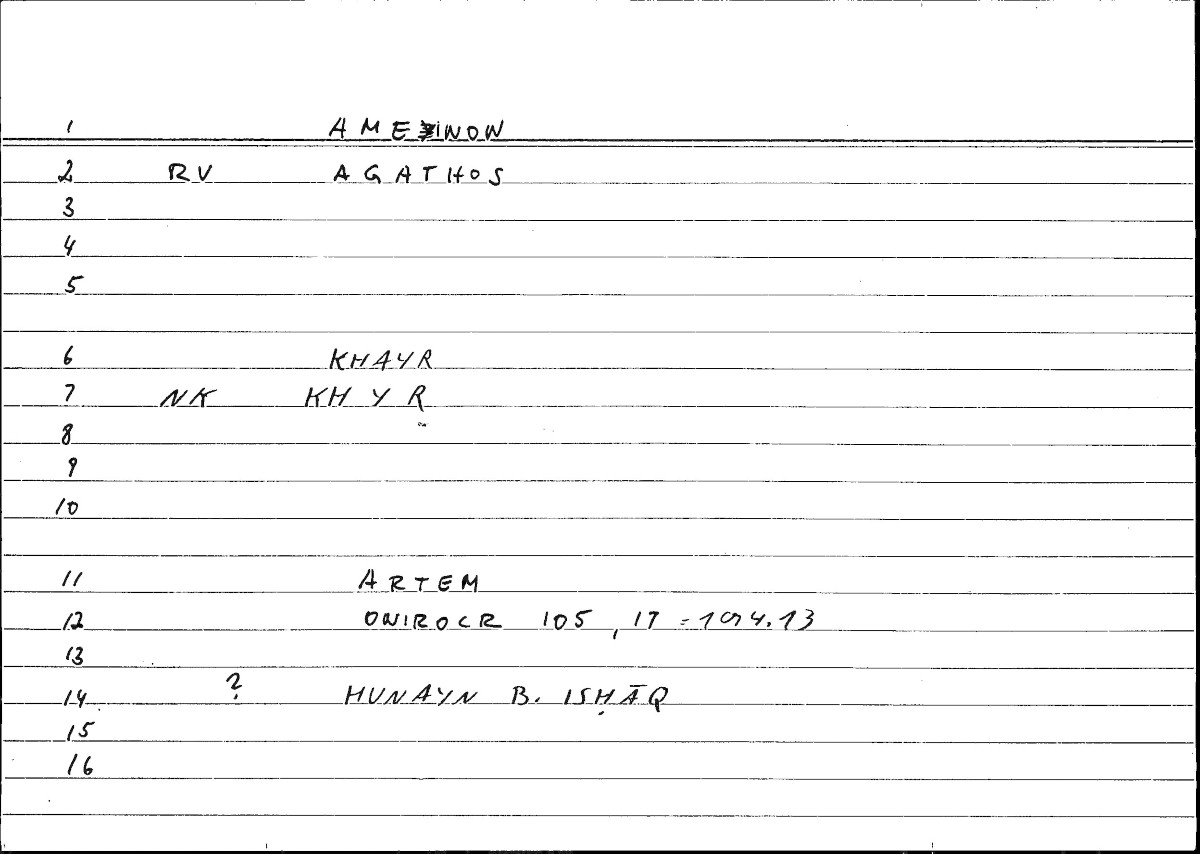 1 AMEINON
2 RV AGATHOS
3
4
5
6 KHAYR
7 NK KH Y R
8
9
10
11 ARTEM
12 ONIROCR 105, 17 = 194.13
13
14 ? HUNAYN B. ISḤĀQ
15
16